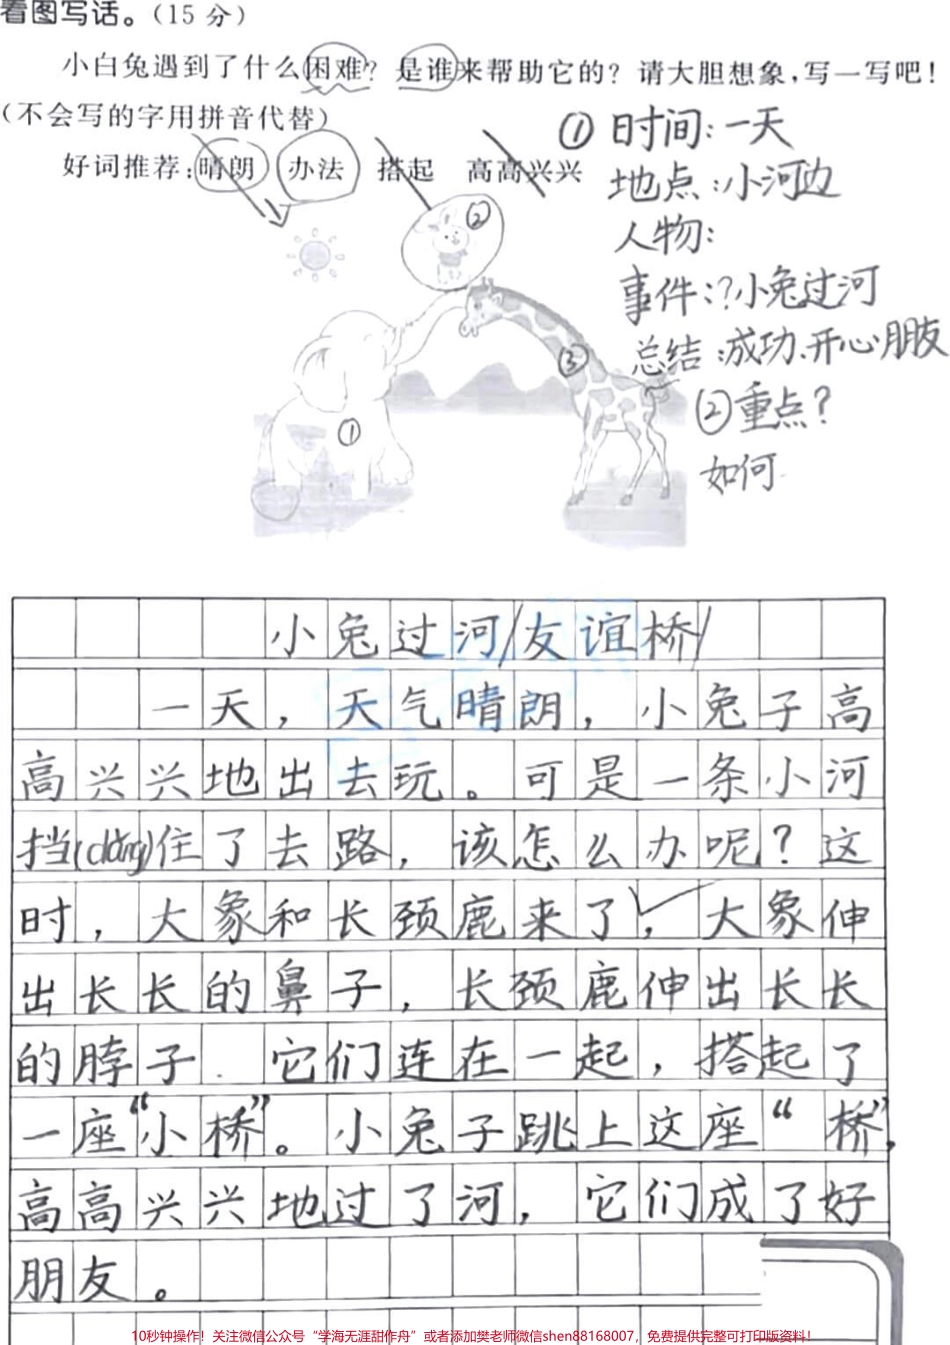 看图写话。（15 分）
小白兔遇到了什么困难？是谁来帮助它的？请大胆想象，写一写吧！
（不会写的字用拼音代替）
好词推荐：晴朗 办法 搭起 高高兴兴
①时间：一天
地点：小河边
人物：
事件：？小兔过河
总结：成功、开心朋友
②重点？
如何
②
③
①
小兔过河/友谊桥/
一天，天气晴朗，小兔子高
高兴兴地出去玩。可是一条小河
挡(dǎng)住了去路，该怎么办呢？这
时，大象和长颈鹿来了，大象伸
出长长的鼻子，长颈鹿伸出长长
的脖子．它们连在一起，搭起了
一座“小桥”。小兔子跳上这座“桥”，
高高兴兴地过了河，它们成了好
朋友。
10秒钟操作！关注微信公众号“学海无涯甜作舟”或者添加樊老师微信shen88168007，免费提供完整可打印版资料！